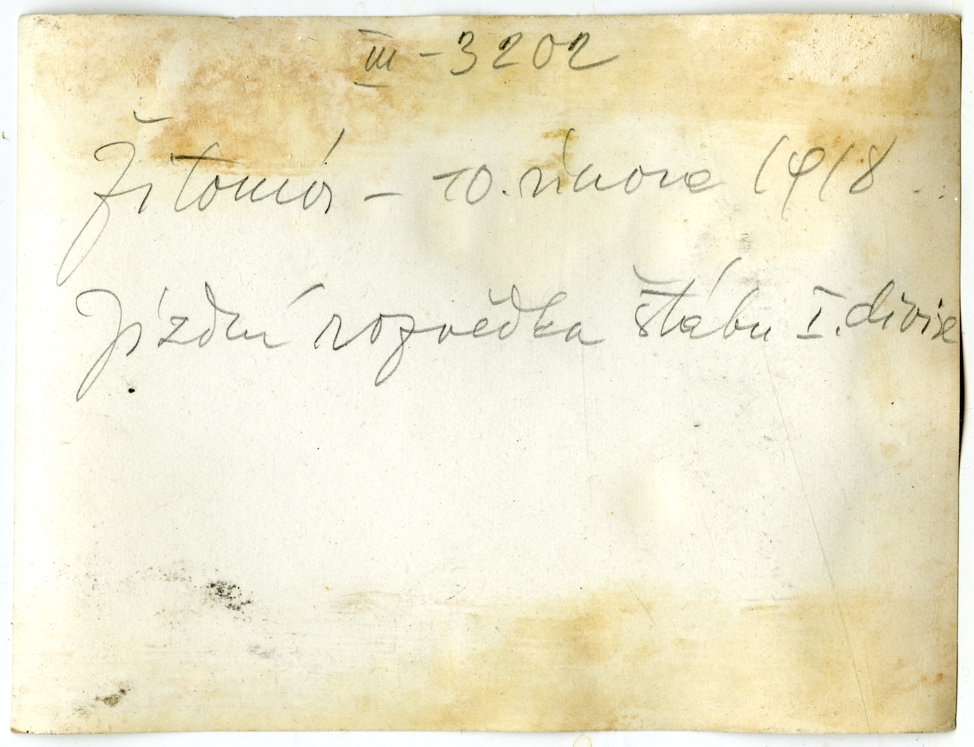 III-3202
Žitomír - 10. února 1918
Jízdní rozvědka štábu I. divise